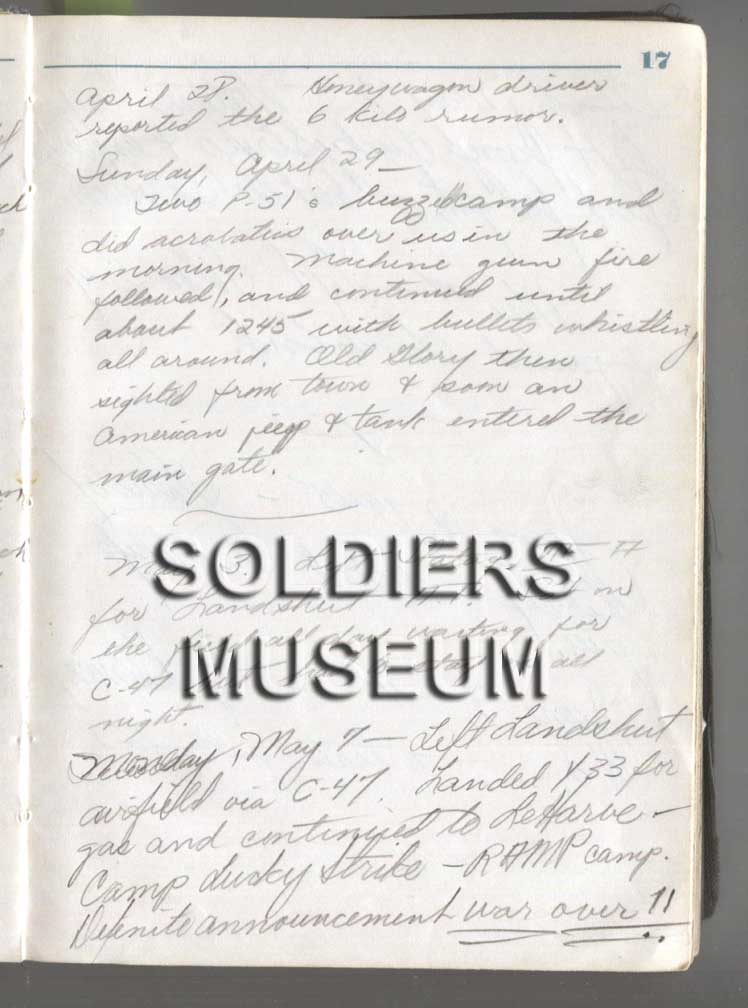 17
April 28. Honeywagon driver
reported the 6 kilo rumor.
Sunday, April 29—
Two P-51's buzzed camp and
did acrobatics over us in the
morning. Machine gun fire
followed, and continued until
about 1245 with bullets whistling
all around. Old Glory then
sighted from town & soon an
American jeep & tank entered the
main gate.
SOLDIERS
May 3. Left
for Landshut on
the all day waiting for
MUSEUM
C-47 all
night.
Monday, May 7— Left Landshut
airfield via C-47. Landed Y33 for
gas and continued to LeHarve—
Camp Lucky Strike — RAMP camp.
Definite announcement war over !!